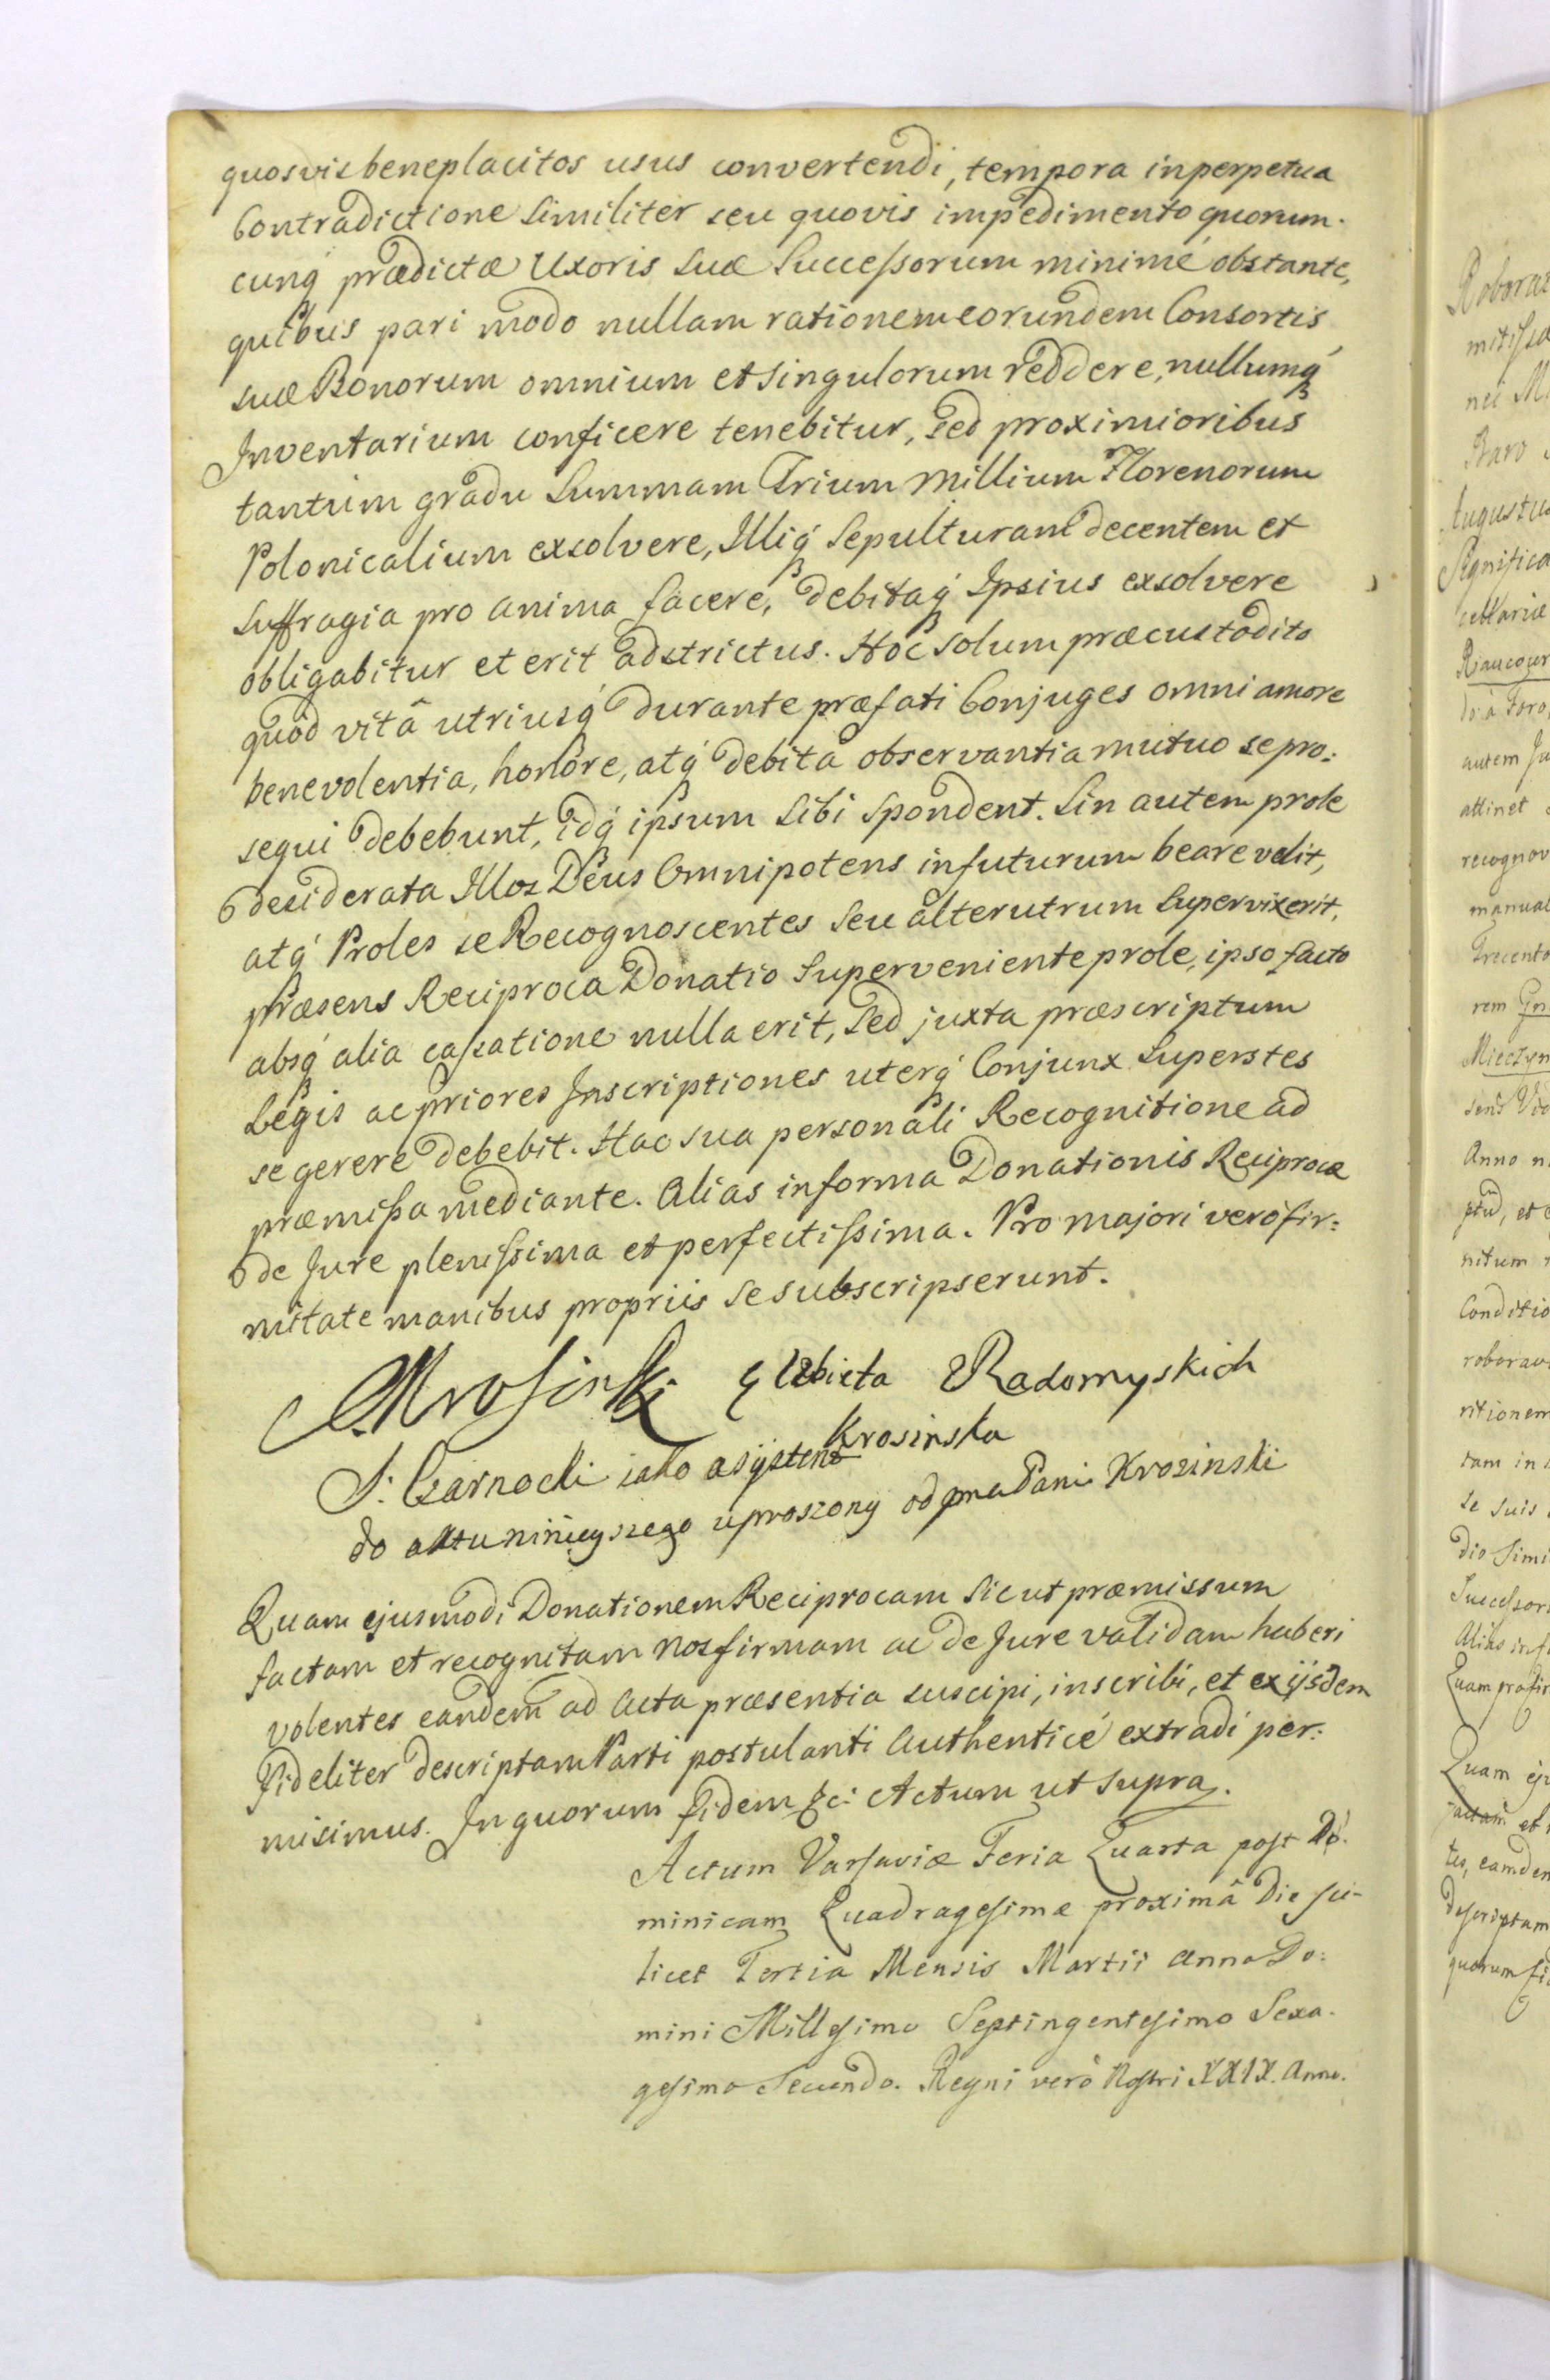 quosvis beneplacitos usus convertendi, tempora in perpetua
Contradictione Similiter seu quovis impedimento quorum-
cunq́ prædictæ Uxoris Suæ Successorum minimé obstante,
quibus pari modo nullam rationem eorundem Consortis
suæ Bonorum omnium et Singulorum reddere, nullumq́
Inventarium conficere tenebitur, Sed proximioribus
tantum gradu Summam Trium Millium Florenorum
Polonicalium exsolvere, Illiq́ Sepulturam decentem et
Suffragia pro anima facere, debitaq́ Ipsius exsolvere
obligabitur et erit adstrictus. Hoc solum præcustodito
quòd vitâ utriusq́ durante præfati Conjuges omni amore
benevolentia, honore, atq́ debita observantia mutuo se pro:
sequi debebunt, idq́ ipsum Sibi Spondent. Sin autem prole
desiderata Illos Deus Omnipotens in futurum beare velit,
atq́ Proles se Recognoscentes Seu alterutrum Supervixerit,
præsens Reciproca Donatio Superveniente prole, ipso facto
absq́ alia cassatione nulla erit, Sed juxta præscriptum
Legis ac priores Inscriptiones uterq́ Conjunx Superstes
se gerere debebit. Hac sua personali Recognitione ad
præmissa mediante. Alias in forma Donationis Reciprocæ
de Jure plenissima et perfectissima. Pro majori vero fir:
mitate manibus propriis se subscripserunt.
Krosinski Elzbieta Radomyskich
Krosinska
J: Czarnocki iako asystent
do aktu ninieyszego uproszony od Pani Krosinski
Quam ejusmodi Donationem Reciprocam Sic ut præmissum
factam et recognitam Nos firmam ac de Jure validam haberi
volentes eandem ad Acta præsentia suscipi, inscribi, et ex ijsdem
Fideliter descriptam Parti postulanti Authenticé extradi per:
misimus. In quorum fidem &c: Actum ut supra.
Actum Varsaviæ Feria Quarta post Do:
minicam Quadragesimæ proximâ Die sci-
licet Tertia Mensis Martii Anno Do:
mini Millesimo Septingentesimo Sexa-
gesimo Secundo. Regni verò Nostri XXIX. Anno.